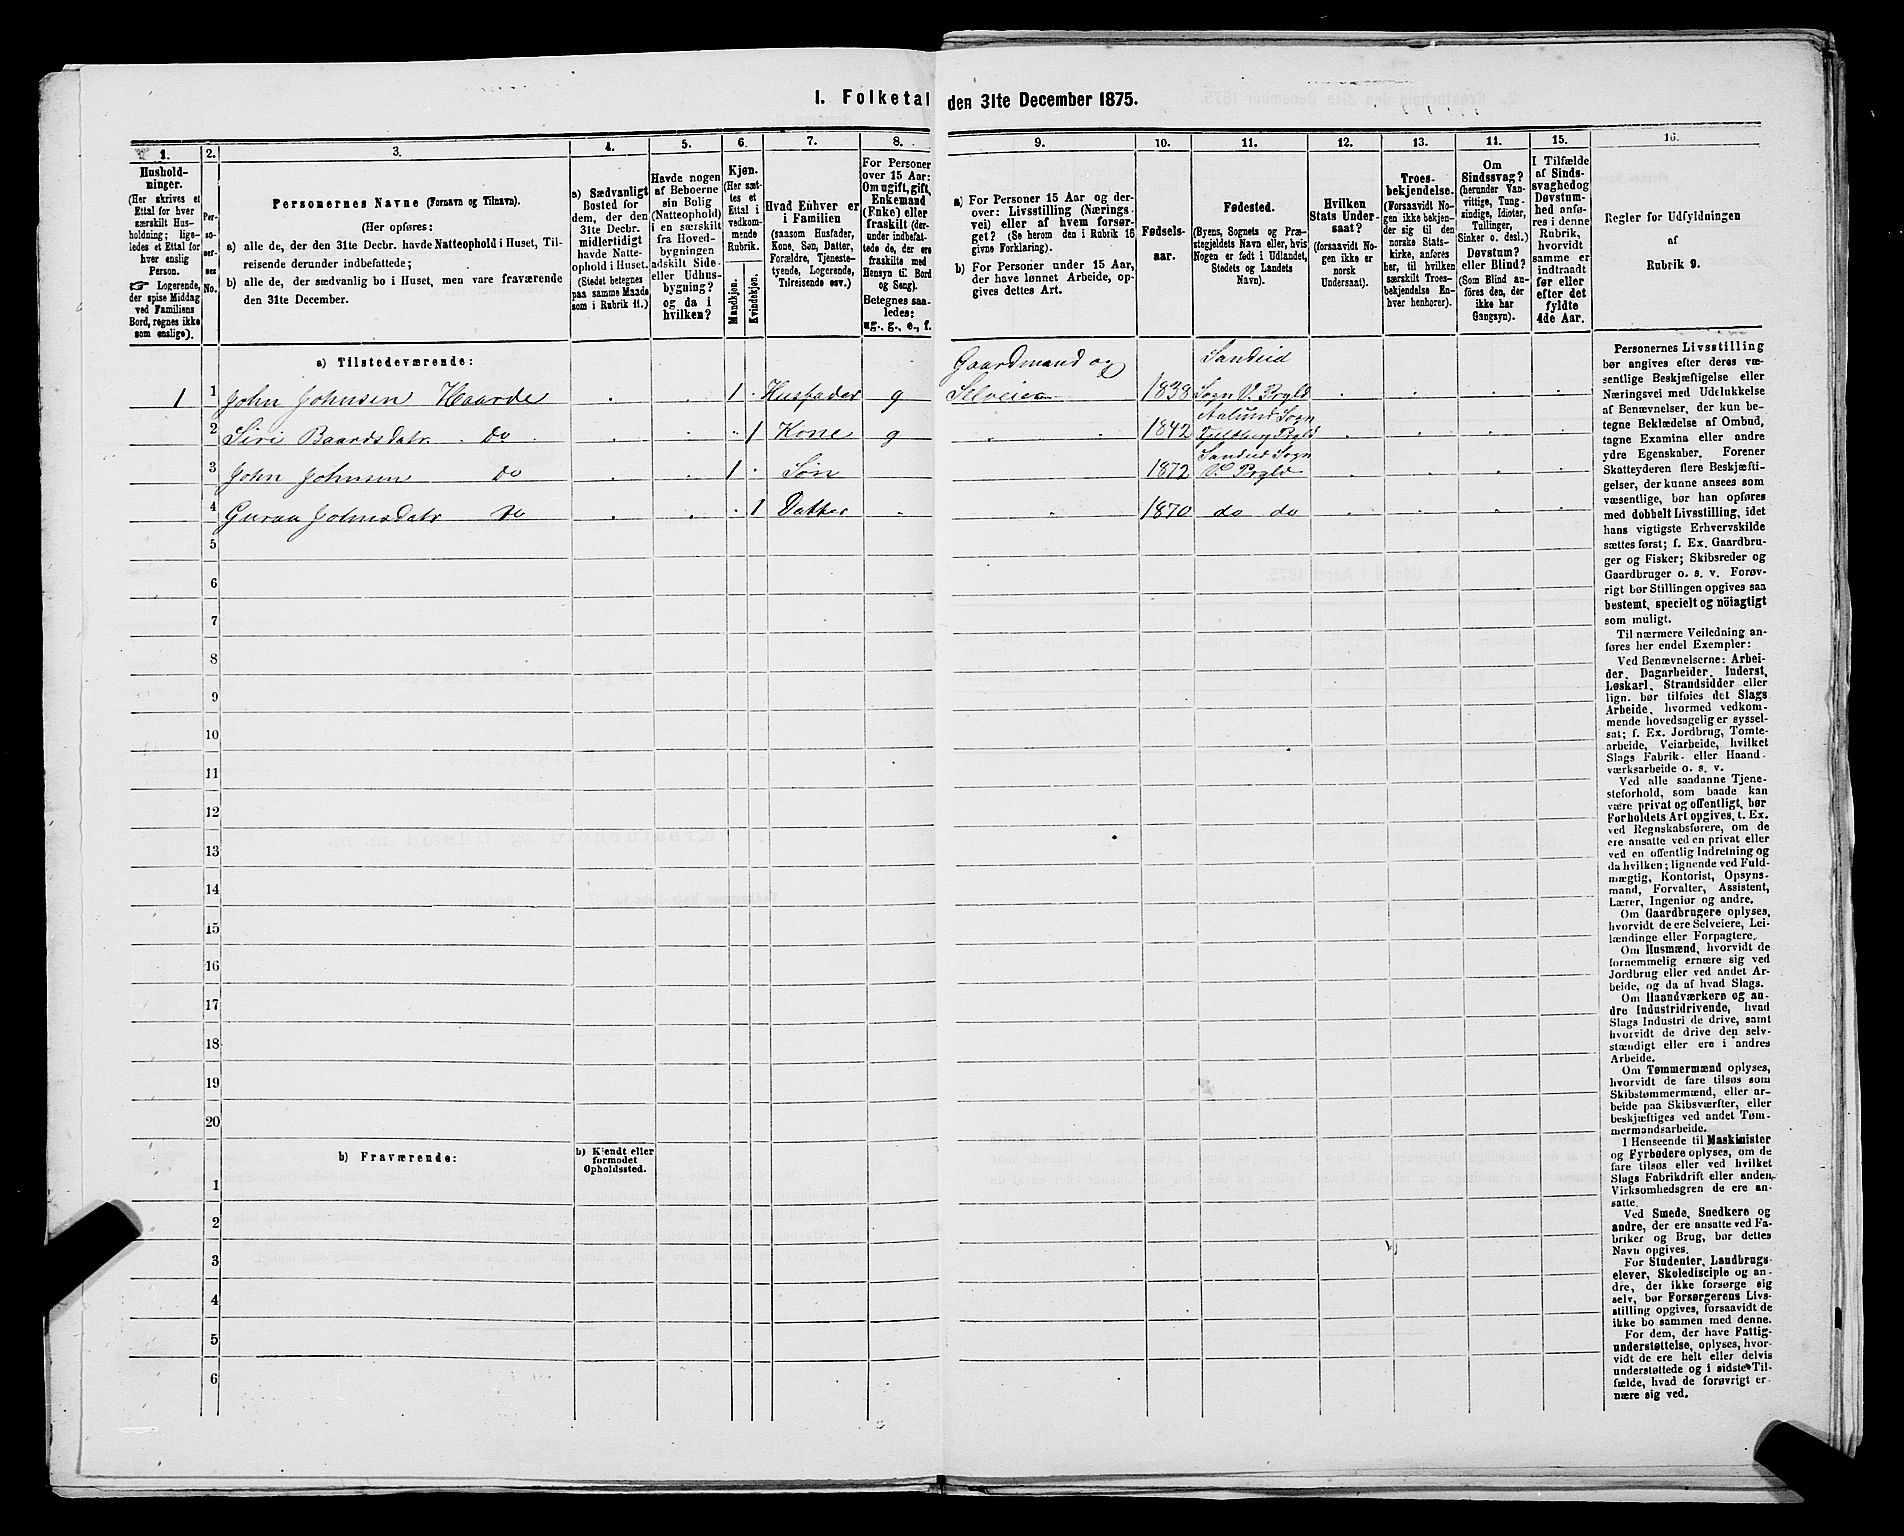 I. Folketal den 31te December 1875.
1.
Husholdninger.
(Her skrives et
Ettal for hver
særskilt Husholdning; ligeledes et Ettal for
hver enslig
Person.
☞ Logerende,
der spise Middag
ved Familiens
Bord, regnes ikke
som enslige).
2.
Personernes No.
3.
Personernes Navne (Fornavn og Tilnavn).
(Her opføres:
a) alle de, der den 31te Decbr. havde Natteophold i Huset, Tilreisende derunder indbefattede;
b) alle de, der sædvanlig bo i Huset, men vare fraværende
den 31te December.
4.
a) Sædvanligt
Bosted for
dem, der den
31te Decbr.
midlertidigt
havde Natteophold i Huset.
(Stedet betegnes
paa samme Maade
som i Rubrik 11.)
5.
Havde nogen
af Beboerne
sin Bolig
(Natteophold)
i en særskilt
fra Hovedbygningen
adskilt Side-
eller Udhusbygning?
og da i
hvilken?
6.
Kjøn.
(Her sættes et
Ettal i
vedkommende
Rubrik.
Mandkjøn.
Kvindekjøn.
7.
Hvad Enhver er
i Familien
(saasom Husfader,
Kone, Søn, Datter,
Forældre, Tjenestetyende, Logerende,
Tilreisende osv.)
8.
For Personer
over 15 Aar:
Om ugift, gift,
Enkemand
(Enke) eller
fraskilt (derunder indbefattede de, der ere
fraskilte med
Hensyn til Bord
og Seng).
Betegnes saaledes:
ug., g., e., f.
9.
a) For Personer 15 Aar og derover: Livsstilling (Næringsvei) eller af hvem forsørget? (Se herom den i Rubrik 16
givne Forklaring).
b) For Personer under 15 Aar,
der have lønnet Arbeide, opgives dettes Art.
10.
Fødselsaar.
11.
Fødested.
(Byens, Sognets og Præstegjeldets Navn eller, hvis
Nogen er født i Udlandet,
Stedets og Landets
Navn).
12.
Hvilken
Stats Undersaat?
(forsaavidt Nogen ikke er
norsk
Undersaat).
13.
Troesbekjendelse.
(Forsaavidt Nogen ikke bekjender sig til den
norske Statskirke, anføres
her, til hvilken
særskilt Troesbekjendelse Enhver henhører).
14.
Om
Sindssvag?
(herunder Vanvittige, Tungsindige, Idioter,
Tullinger,
Sinker o. desl.)
Døvstum?
eller Blind?
(Som Blind anføres den, der
ikke har
Gangsyn).
15.
I Tilfælde
af Sindssvaghed og
Døvstumhed anføres i denne
Rubrik,
hvorvidt
samme er
indtraadt
før eller
efter det
fyldte
4de Aar.
16.
Regler for Udfyldningen
af
Rubrik 9.
a) Tilstedeværende:
1 1 John Johnsen Haarde 1 Husfader g Gaardmand og Selveier 1838 Sandeid Sogn V. Prgld
2 Siri Baardsdatr Do 1 Kone g 1842 Sogn Prgld
3 John Johnsen Do 1 Søn 1872 Sandeid Sogn V. Prgld
4 Guraa Johnsdatr Do 1 Datter 1870 do do
5
6
7
8
9
10
11
12
13
14
15
16
17
18
19
20
b) Fraværende:
b) Kjendt eller
formodet
Opholdssted.
1
2
3
4
5
6
Personernes Livsstilling
bør angives efter deres væsentlige Beskjæftigelse eller
Næringsvei med Udelukkelse
af Benævnelser, der kun betegne Beklædelse af Ombud,
tagne Examina eller andre
ydre Egenskaber. Forener
Skatteyderen flere Beskjæftigelser, der kunne ansees som
væsentlige, bør han opføres
med dobbelt Livsstilling, idet
hans vigtigste Erhvervskilde
sættes først; f. Ex. Gaardbruger og Fisker; Skibsreder og
Gaardbruger o. s. v. Forøvrigt bør Stillingen opgives saa
bestemt, specielt og nöiagtigt
som muligt.
Til nærmere Veiledning anføres her endel Exempler:
Ved Benævnelserne: Arbeider, Dagarbeider, Inderst,
Løskarl, Strandsidder eller
lign. bør tilføies det Slags
Arbeide, hvormed vedkommende hovedsagelig er sysselsat; f. Ex. Jordbrug, Tomtearbeide, Veiarbeide, hvilket
Slags Fabrik- eller Haandværksarbeide o. s. v.
Ved alle saadanne Tjenesteforhold, som baade kan
være privat og offentligt, bør
Forholdets Art opgives, t. Ex.
ved Regnskabsførere, om de
ere ansatte ved en privat eller
ved en offentlig Indretning og
da hvilken; lignende ved Fuldmægtig, Kontorist, Opsynsmand, Forvalter, Assistent,
Lærer, Ingeniør og andre.
Om Gaardbrugere oplyses,
hvorvidt de ere Selveiere, Leilændinge eller Forpagtere.
Om Husmænd, hvorvidt de
fornemmelig ernære sig ved
Jordbrug eller ved andet Arbeide, og da af hvad Slags.
Om Haandværkere og andre Industridrivende, hvad
Slags Industri de drive, samt
hvorvidt de drive den selvstændigt eller ere i andres
Arbeide.
Om Tømmermænd oplyses,
hvorvidt de fare tilsøs som
Skibstømmermænd, eller arbeide paa Skibsværfter, eller
beskjæftiges ved andet Tømmermandsarbeide.
I Henseende til Maskinister
og Fyrbødere oplyses, om de
fare tilsøs eller ved hvilket
Slags Fabrikdrift eller anden
Virksomhedsgren de ere ansatte.
Ved Smede, Snedkere og
andre, der ere ansatte ved Fabriker og Brug, bør dettes
Navn opgives.
For Studenter, Landbrugselever, Skoledisciple og andre, der ikke forsørge sig
selv, bør Forsørgerens Livsstilling opgives, forsaavidt de
ikke bo sammen med denne.
For dem, der have Fattigunderstøttelse, oplyses, hvorvidt de ere helt eller delvis
understøttede og i sidste Tilfælde, hvad de forøvrigt ernære sig ved.